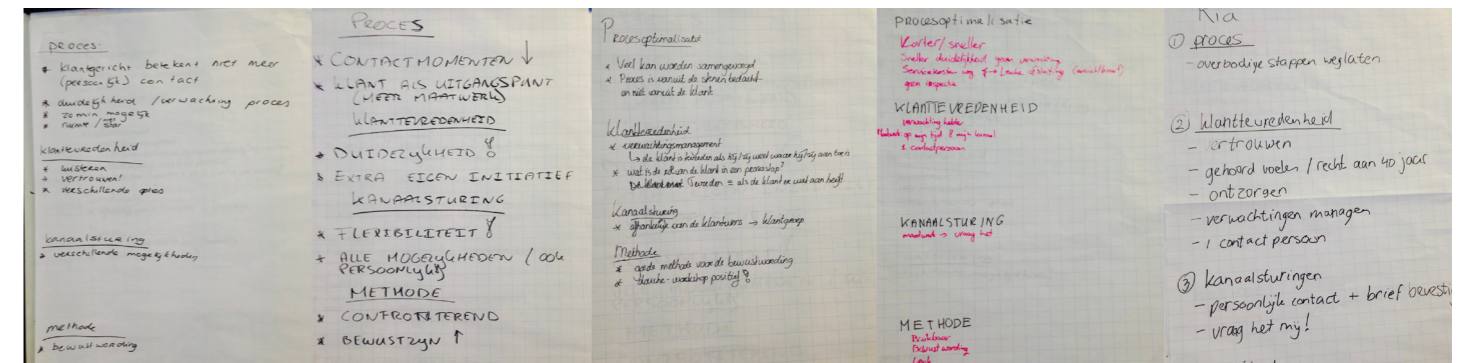 proces:
* klantgericht betekent niet meer
(persoonlijk) contact
* duidelijkheid / verwachting proces
* zo min mogelijk
* ruimte /
klanttevredenheid
* luisteren
* vertrouwen!
* verschillende opties
kanaalsturing
* verschillende mogelijkheden
methode
* bewustwording
PROCES
* CONTACTMOMENTEN ↓
* KLANT ALS UITGANGSPUNT
(MEER MAATWERK)
KLANTTEVREDENHEID
* DUIDELIJKHEID!
* EXTRA EIGEN INITIATIEF
KANAALSTURING
* FLEXIBILITEIT!
* ALLE MOGELIJKHEDEN / OOK
PERSOONLIJK
METHODE
* CONFRONTEREND
* BEWUSTZIJN ↑
Procesoptimalisatie
* Veel kan worden samengevoegd
* Proces is vanuit de stenen bedacht
en niet vanuit de klant
Klanttevredenheid
* verwachtingsmanagement
↳ de klant is tevreden als hij/zij weet waar hij/zij aan toe is
* wat is de rol van de klant in een proces/stap?
Tevreden = als de klant er wat aan heeft
Kanaalsturing
* afhankelijk van de klantwens → klantgroep
Methode
* goede methode voor de bewustwording
* workshop positief!
PROCESoptimalisatie
Korter/sneller
Sneller duidelijkheid geen verwarring
Servicekosten weg
geen inspectie
KLANTTEVREDENHEID
verwachting helder
op mijn tijd & mijn kanaal
1 contactpersoon
KANAALSTURING
maatwerk → vraag het
METHODE
Bruikbaar
Bewustwording
Leuk
Kia
① proces
- overbodige stappen weglaten
② klanttevredenheid
- vertrouwen
- gehoord voelen / recht aan 40 jaar
- ontzorgen
- verwachtingen managen
- 1 contact persoon
③ kanaalsturingen
- persoonlijk contact + brief bevesti
- vraag het mij!